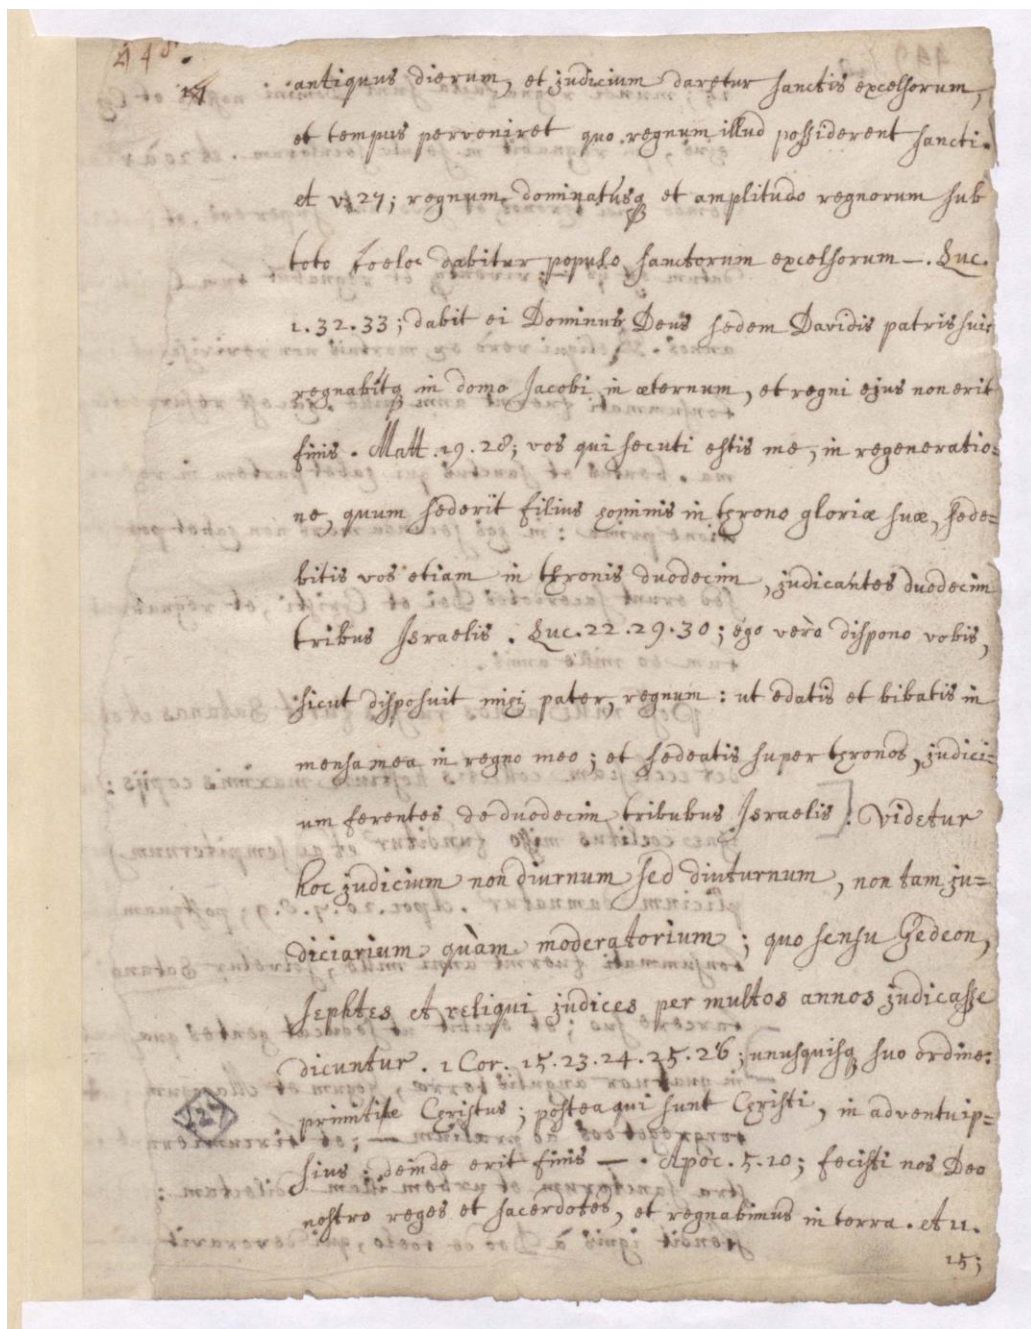 448.
antiquus dierum, et judicium daretur sanctis excelsorum,
et tempus perveniret quo regnum illud possiderent sancti.
et v. 27; regnum dominatusq et amplitudo regnorum sub
toto coeloc dabitur populo sanctorum excelsorum —. Luc.
1.32.33; dabit ei Dominus Deus sedem Davidis patris sui:
regnabitq in domo Jacobi in æternum, et regni ejus non erit
finis. Matt. 19.28; vos qui secuti estis me, in regeneratio=
ne, quum sederit filius hominis in throno gloriæ suæ, sede=
bitis vos etiam in thronis duodecim, judicantes duodecim
tribus Israelis. Luc. 22.29.30; ego verò dispono vobis,
sicut disposuit mihi pater, regnum: ut edatis et bibatis in
mensa mea in regno meo; et sedeatis super thronos, judici=
um ferentes de duodecim tribubus Israelis]. Videtur
hoc judicium non diurnum sed diuturnum, non tam ju=
diciarium quàm moderatorium; quo sensu Gedeon,
Jephtes et reliqui judices per multos annos judicasse
dicuntur. 1 Cor. 15.23.24.25.26; unusquisq suo ordine:
primitiæ Christus; postea qui sunt Christi, in adventu ip=
sius: deinde erit finis —. Apoc. 5.10; fecisti nos Deo
nostro reges et sacerdotes, et regnabimus in terra. Et 11.
15;